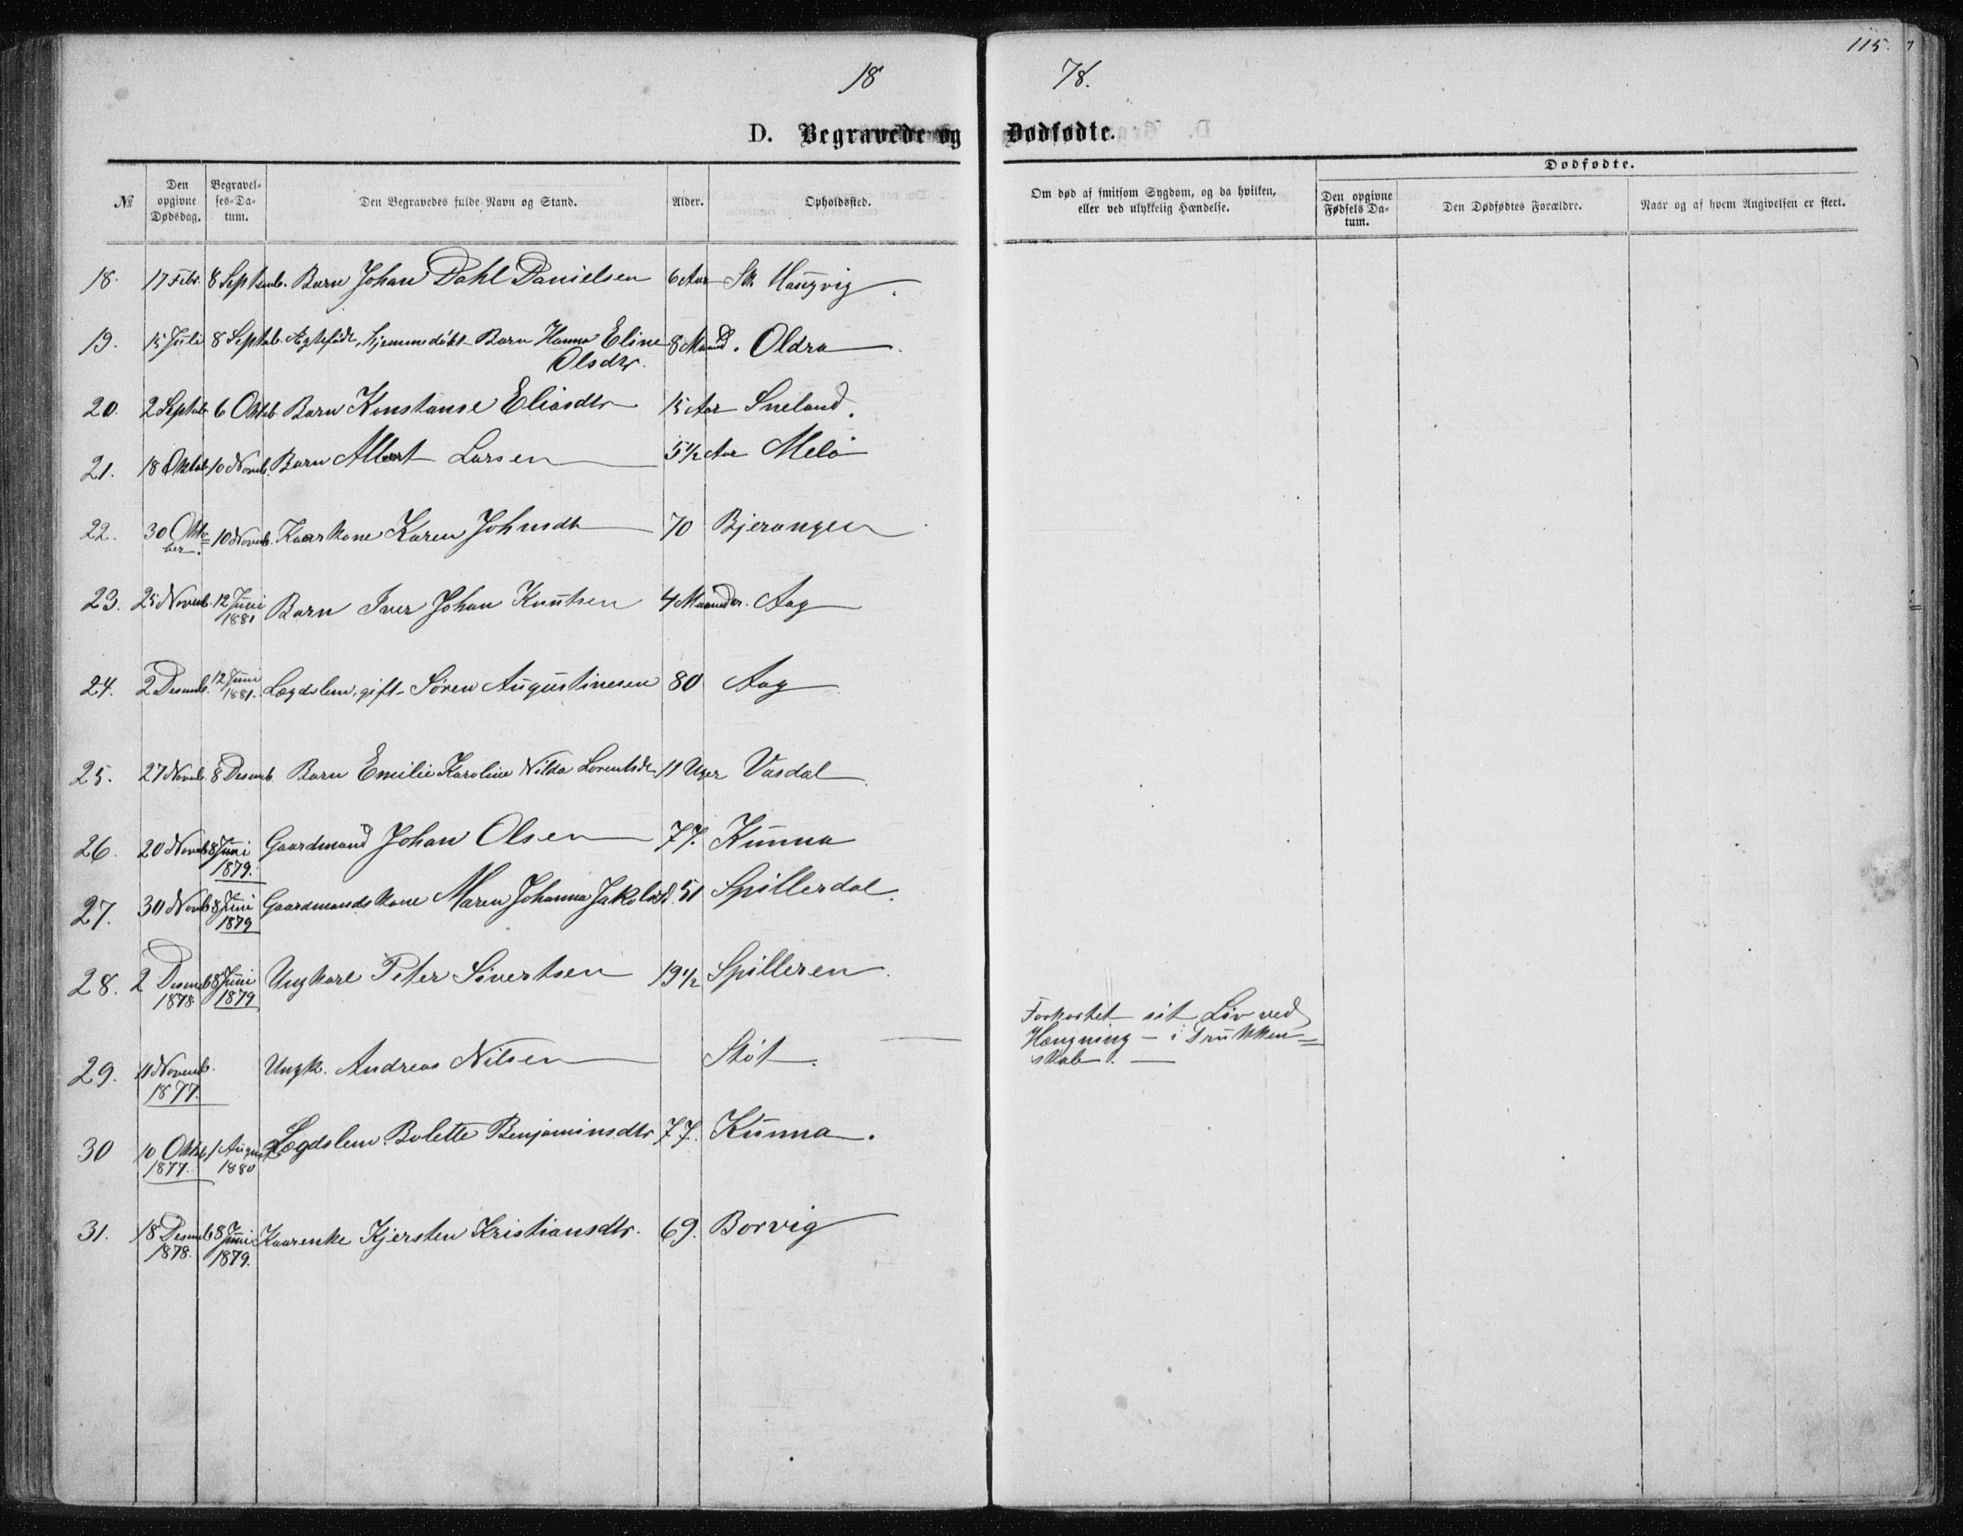 115.
18 78.
D. Begravede og Dødfødte.
№
Den opgivne Dødsdag.
Begravelses-Datum.
Den Begravedes fulde Navn og Stand.
Alder.
Opholdssted.
Om død af smitsom Sygdom, og da hvilken, eller ved ulykkelig Hændelse.
Dødfødte.
Den opgivne Fødsels Datum.
Den Dødfødtes Forældre.
Naar og af hvem Angivelsen er skeet.
18. 17 Febr. 8 Septemb. Barn Johan Dahl Danielsen 6 Aar St. Haugvig.
19. 15 Juli 8 Septb. Ægtefødt, hjemmedøbt Barn Hanna Eline 8 Maand. Oldra
Olsdtr.
20. 2 Septb. 6 Oktb Barn Konstanse Eliasdtr 15 Aar Sneland.
21. 18 Oktob 10 Novb. Barn Albert Larsen 5 1/2 Aar Melö
22. 30 Okto= 10 Novb. Kaarkone Karen Johnsdtr 70 Bjerangen
ber.
23. 25 Novemb. 12 Juni Barn Iver Johan Knutsen 4 Maaneder. Aag
1881
24. 2 Desemb. 12 Juni Lægdslem, gift Sören Augustinesen 80 Aag
1881.
25. 27 Novb. 8 Desemb. Barn Emilie Karoline Nilda Lorentsdtr 11 Uger Vasdal
26. 20 Novb 8 Juni Gaardmand Johan Olsen 77. Kunna
1879.
27. 30 Novb 8 Juni Gaardmandskone Maren Johanna Jakobsd. 51 Spillerdal.
1879
28. 2 Desemb 8 Juni Ungkarl Peter Sivertsen 19 1/2 Spilleren.
1878 1879
29. 11 Novemb. Ungk. Andreas Nilsen Støt.
1877.
Forkortet sit Liv ved
Hængning - i Drukken=
skab.
30 10 Oktb. 1 August Lægdslem Bolette Benjaminsdtr 77. Kunna.
1877. 1880
31. 18 Desemb 8 Juni Kaarenke Kjersten Kristiansdtr. 69. Borvig
1878. 1879.